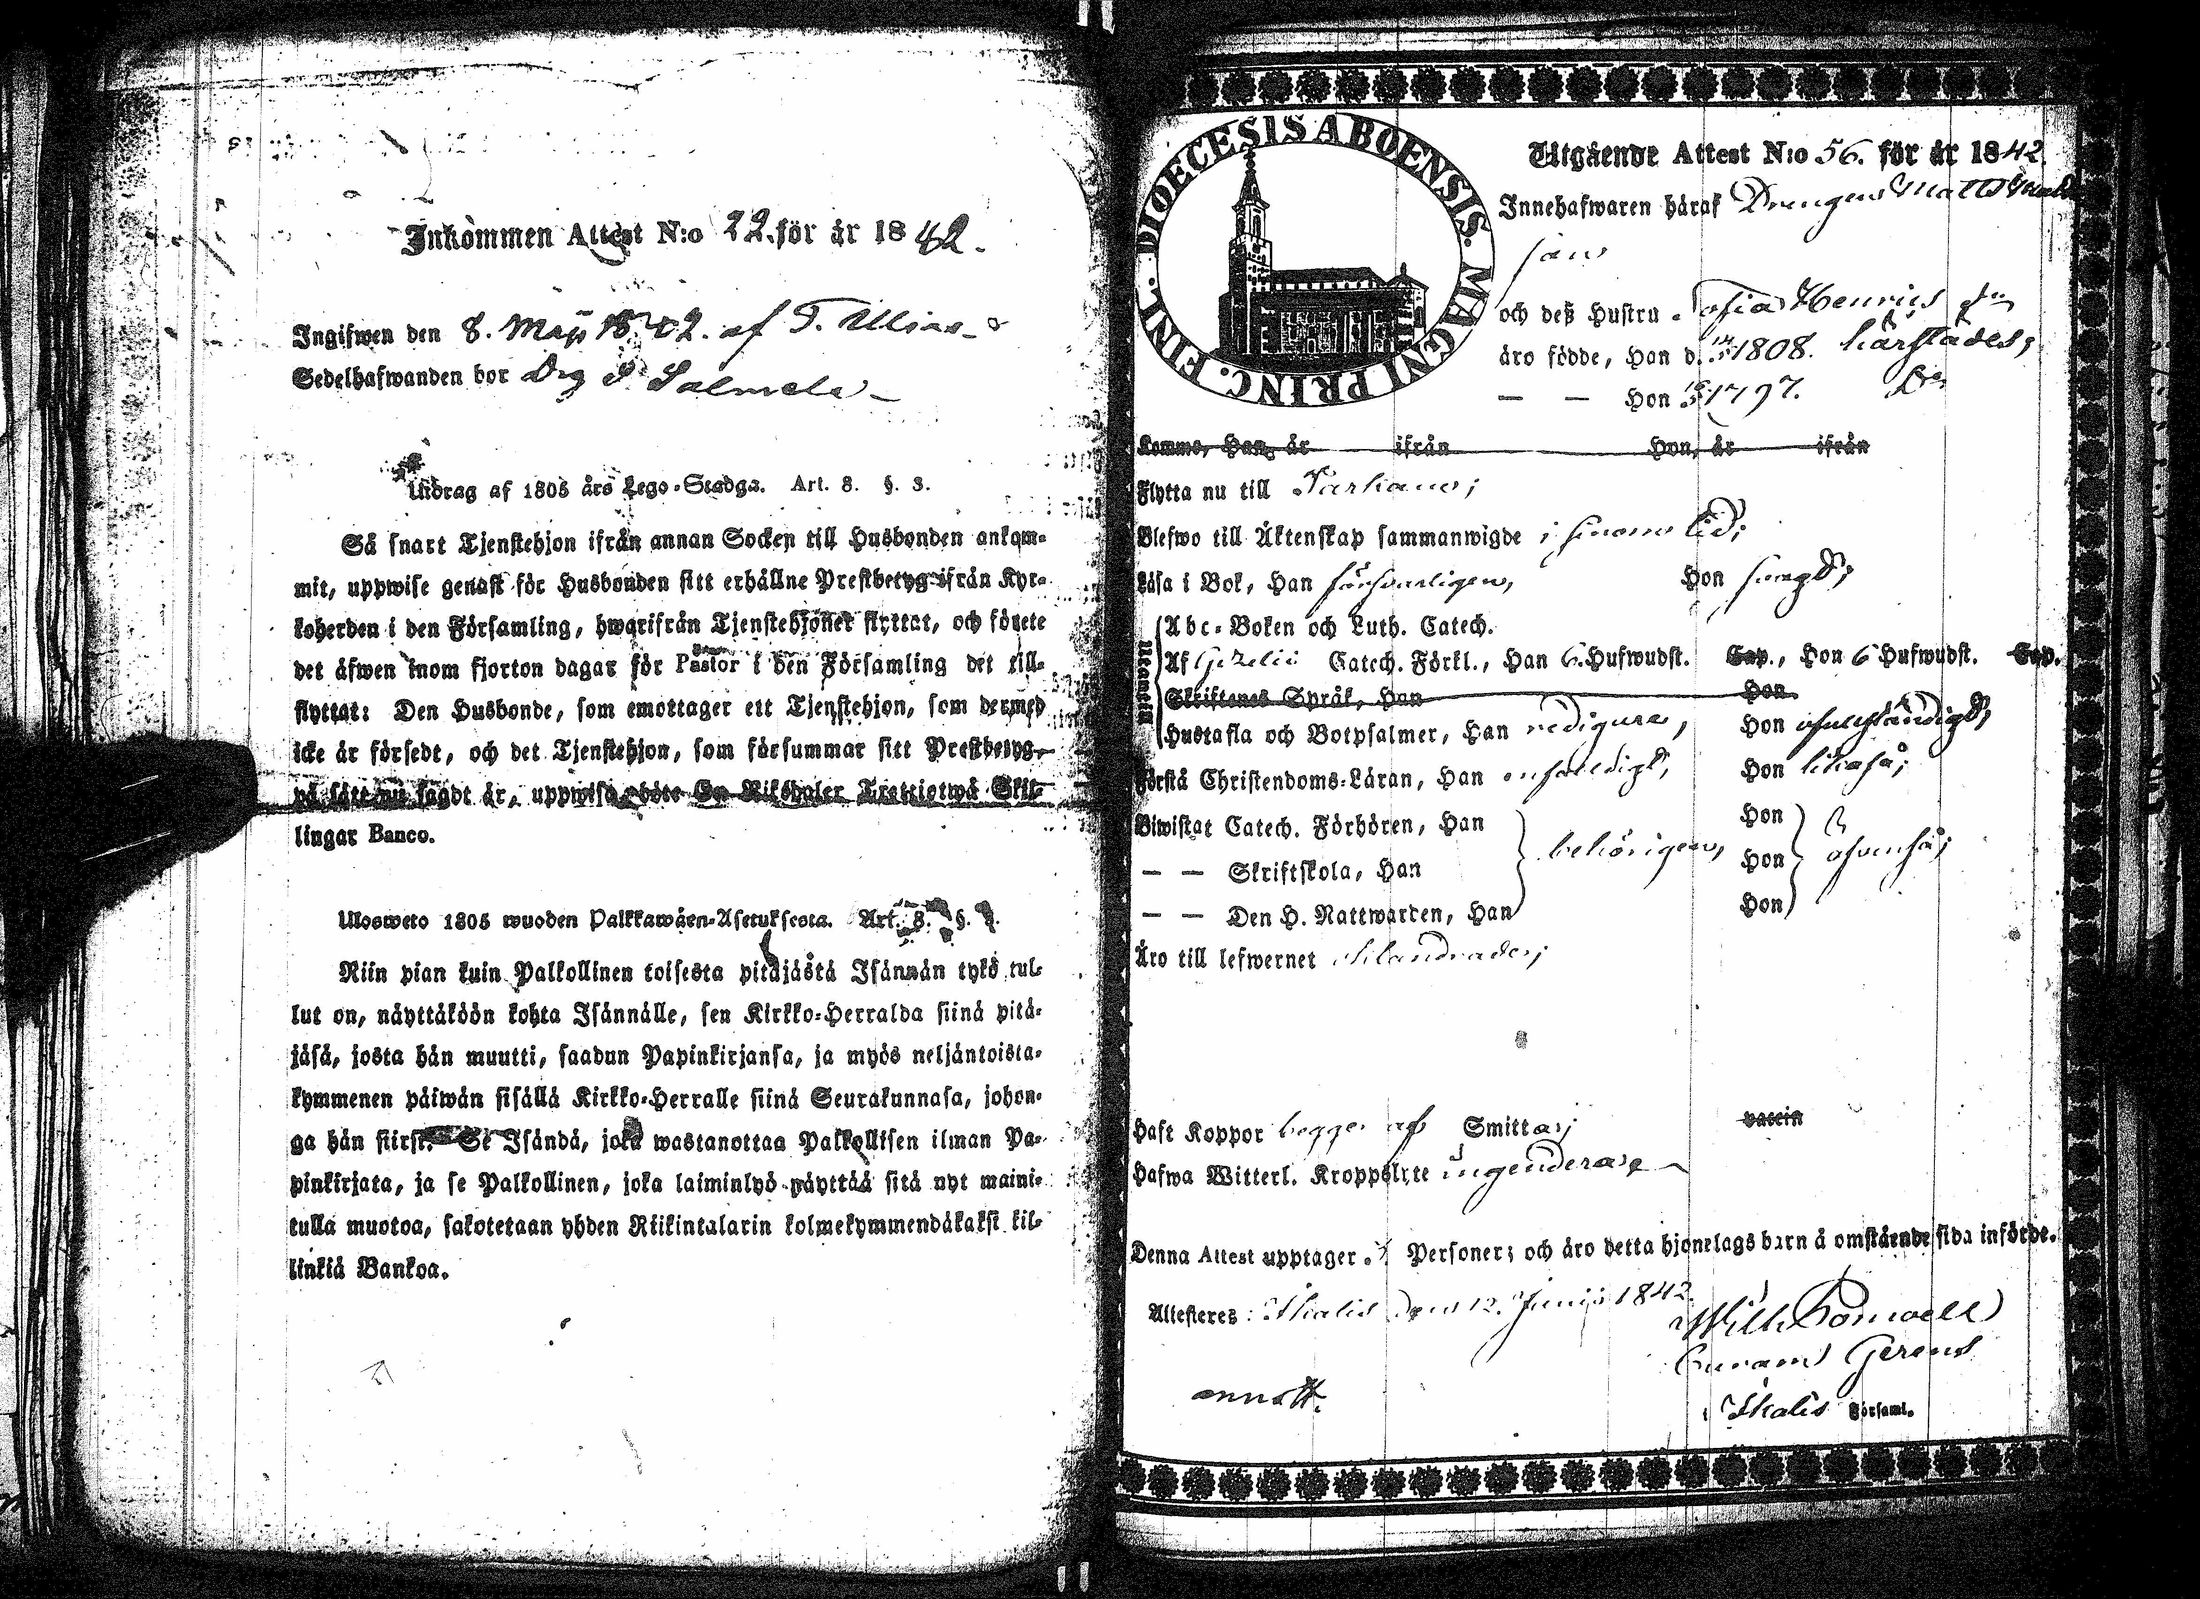 Inkommen Attest N:o 22. för år 1842.
Ingifwen den 8. Maji 1842. af
Sedelhafwanden bor Drg Salmela
Utdrag af 1805 års Lego-Stadga. Art. 8. §. 3.
Så snart Tjenstehjon ifrån annan Socken till Husbonden ankom-
mit, uppwise genast för Husbonden sitt erhållne Prestbetyg ifrån Kyr-
koherden i den Församling, hwarifrån Tjenstehjonet flyttat, och förete
det äfwen inom fjorton dagar för Pastor i den Församling det till-
flyttat: Den Husbonde, som emottager ett Tjenstehjon, som dermed
icke är försedt, och det Tjenstehjon, som försummar sitt Prestbetyg
på sätt nu sagdt är, uppwisa, böte En Riksdaler Trettiotwå Skil-
lingar Banco.
Ulosweto 1805 wuoden Palkkawäen-Asetuksesta. Art. 8. §. 3.
Niin pian kuin Palkollinen toisesta pitäjästä Isännän tykö tul-
lut on, näyttäköön kohta Isännälle, sen Kirkko-Herralda siinä pitä-
jäsä, josta hän muutti, saadun Papinkirjansa, ja myös neljäntoista-
kymmenen päiwän sisällä Kirkko-Herralle siinä Seurakunnasa, johon-
ga hän siirsi. Se Isändä, joka wastanottaa Palkollisen ilman Pa-
pinkirjata, ja se Palkollinen, joka laiminlyö näyttää sitä nyt maini-
tulla muotoa, sakotetaan yhden Riikintalarin kolmekymmendäkaksi kil-
linkiä Bankoa.
DIOECESIS ABOENSIS. MAGNI PRINC. FINL.
Utgående Attest N:o 56. för år 1842.
Innehafwaren häraf Drengen Matts
son
och deß Hustru Sofia Henrics dr
äro födde, Han d. 1808. härstädes;
— — Hon 1797. Do
Komne, Han, år ifrån Hon, år ifrån
Flytta nu till Parkano;
Blefwo till Äktenskap sammanwigde i sinom tid;
Läsa i Bok, Han försvarligen, Hon swagt;
Utantill
Abc-Boken och Luth. Catech.
Af Gezelii Catech. Förkl., Han 6 Hufwudst. Cap., Hon 6 Hufwudst. Cap.
Skriftenes Språk, Han Hon
Hustafla och Botpsalmer, Han redigare, Hon ofullständigt;
Förstå Christendoms-Läran, Han enfaldigt, Hon likaså;
Biwistat Catech. Förhören, Han Hon
— — Skriftskola, Han behörigen, Hon äfvenså;
— — Den H. Nattwarden, Han Hon
Äro till lefwernet oklandrade;
Haft Koppor begge af Smittan; vaccin
Hafwa Witterl. Kroppslyte ingendera
Denna Attest upptager Personer; och äro detta hjonelags barn å omstående sida införde.
Attesteres: Ikalis den 12. Junii 1842.
Wilh.
Curam Gerens
i Ikalis Församl.